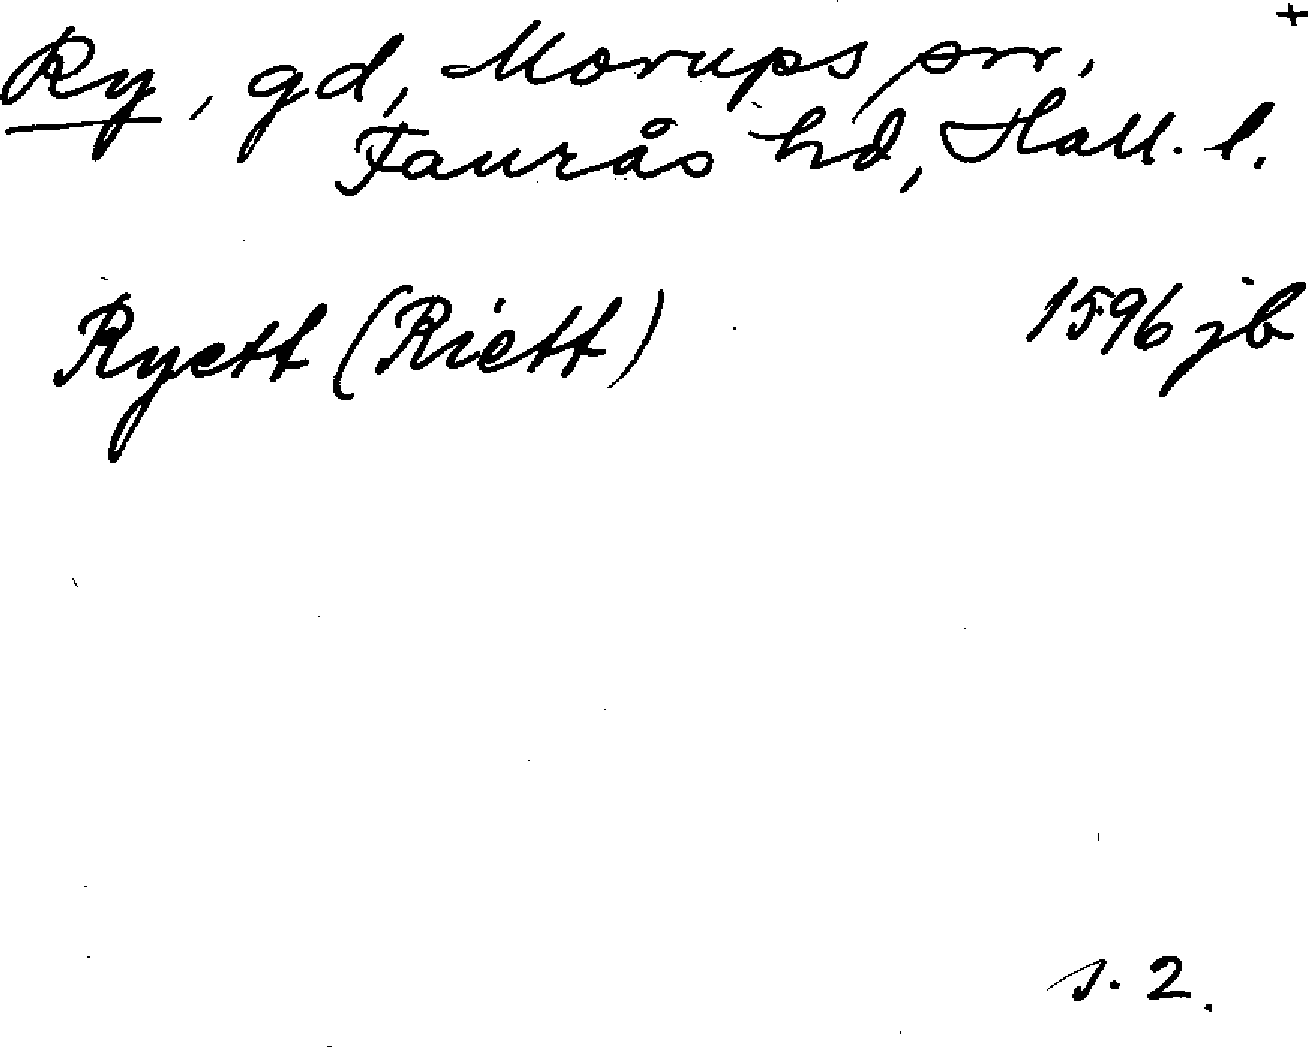 +
Ry, gd, Morups sn,
Faurås hd, Hall. l.
Ryett (Riett) 1596 jb
s. 2.